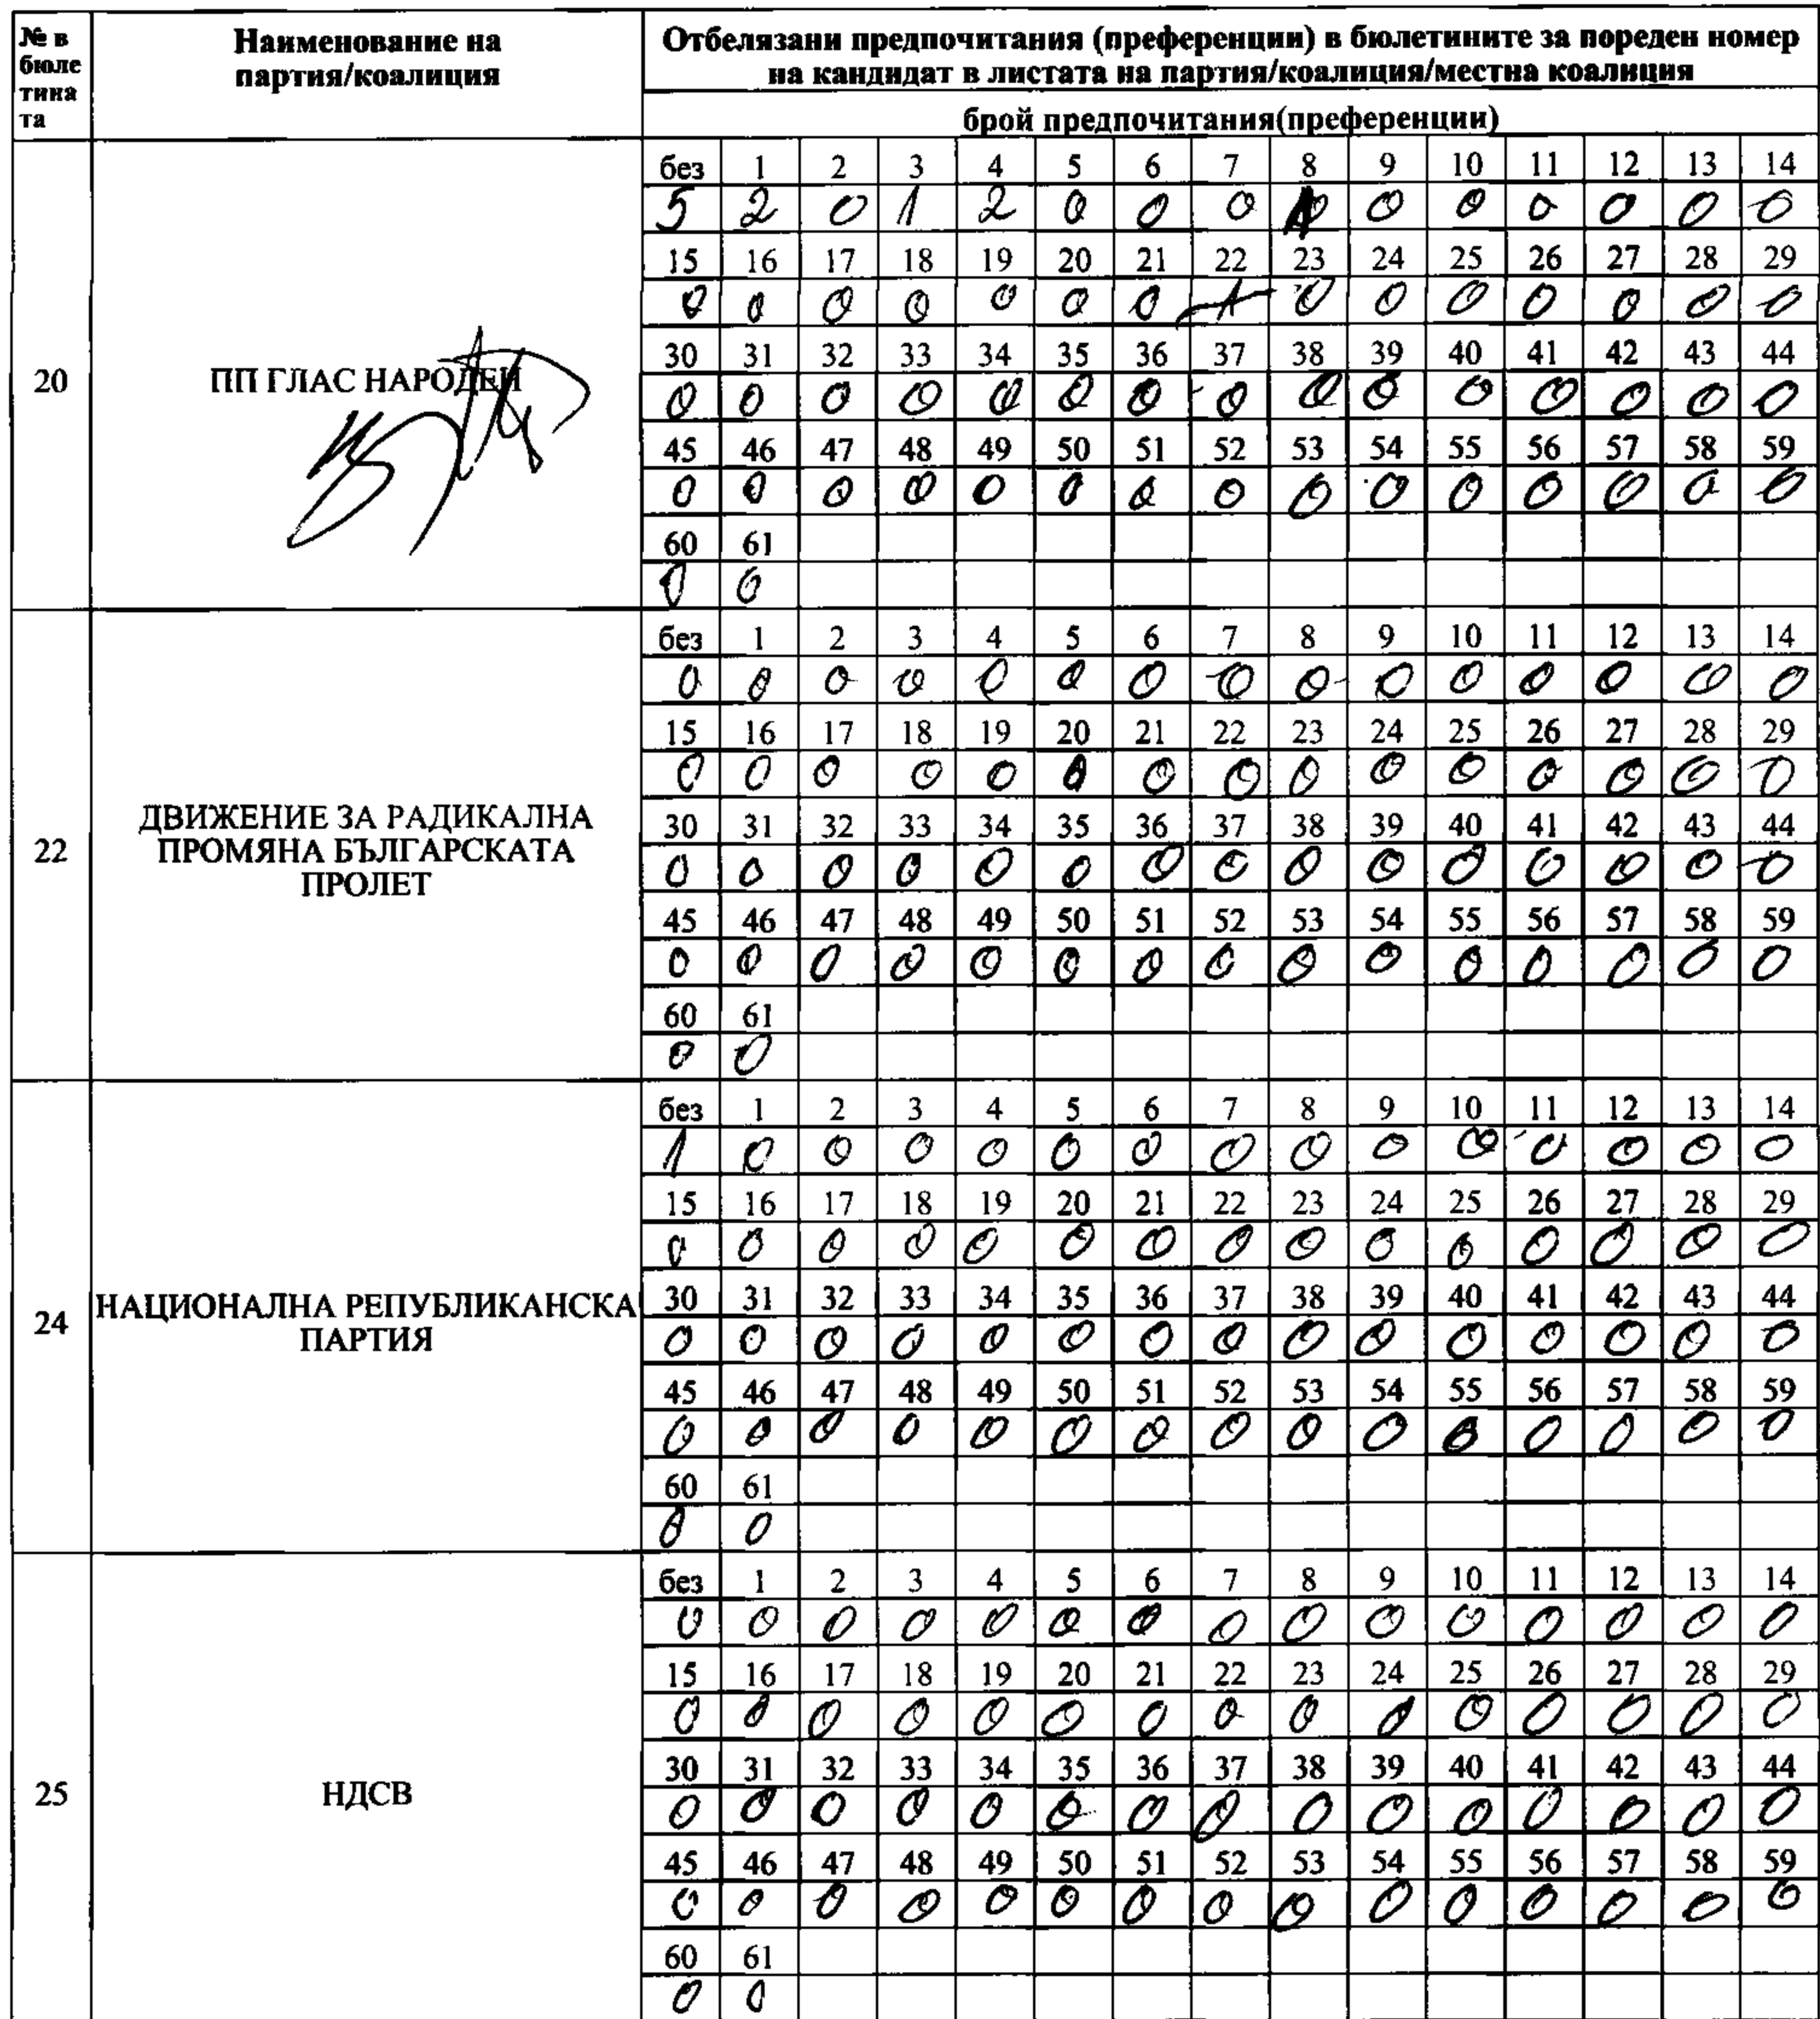 № в бюле тина та
Наименование на партия/коалиция
Отбелязани предпочитания (преференции) в бюлетините за пореден номер
на кандидат в листата на партия/коалиция/местна коалиция
брой предпочитания(преференции)
20
ПП ГЛАС НАРОДЕН
без 1 2 3 4 5 6 7 8 9 10 11 12 13 14
5 2 0 1 2 0 0 0 0 0 0 0 0 0
15 16 17 18 19 20 21 22 23 24 25 26 27 28 29
0 0 0 0 0 0 0 1 0 0 0 0 0 0 0
30 31 32 33 34 35 36 37 38 39 40 41 42 43 44
0 0 0 0 0 0 0 0 0 0 0 0 0 0 0
45 46 47 48 49 50 51 52 53 54 55 56 57 58 59
0 0 0 0 0 0 0 0 0 0 0 0 0 0 0
60 61
0 0
22
ДВИЖЕНИЕ ЗА РАДИКАЛНА
ПРОМЯНА БЪЛГАРСКАТА
ПРОЛЕТ
без 1 2 3 4 5 6 7 8 9 10 11 12 13 14
0 0 0 0 0 0 0 0 0 0 0 0 0 0 0
15 16 17 18 19 20 21 22 23 24 25 26 27 28 29
0 0 0 0 0 0 0 0 0 0 0 0 0 0 0
30 31 32 33 34 35 36 37 38 39 40 41 42 43 44
0 0 0 0 0 0 0 0 0 0 0 0 0 0 0
45 46 47 48 49 50 51 52 53 54 55 56 57 58 59
0 0 0 0 0 0 0 0 0 0 0 0 0 0 0
60 61
0 0
24
НАЦИОНАЛНА РЕПУБЛИКАНСКА
ПАРТИЯ
без 1 2 3 4 5 6 7 8 9 10 11 12 13 14
1 0 0 0 0 0 0 0 0 0 0 0 0 0 0
15 16 17 18 19 20 21 22 23 24 25 26 27 28 29
0 0 0 0 0 0 0 0 0 0 0 0 0 0 0
30 31 32 33 34 35 36 37 38 39 40 41 42 43 44
0 0 0 0 0 0 0 0 0 0 0 0 0 0 0
45 46 47 48 49 50 51 52 53 54 55 56 57 58 59
0 0 0 0 0 0 0 0 0 0 0 0 0 0 0
60 61
0 0
25
НДСВ
без 1 2 3 4 5 6 7 8 9 10 11 12 13 14
0 0 0 0 0 0 0 0 0 0 0 0 0 0 0
15 16 17 18 19 20 21 22 23 24 25 26 27 28 29
0 0 0 0 0 0 0 0 0 0 0 0 0 0 0
30 31 32 33 34 35 36 37 38 39 40 41 42 43 44
0 0 0 0 0 0 0 0 0 0 0 0 0 0 0
45 46 47 48 49 50 51 52 53 54 55 56 57 58 59
0 0 0 0 0 0 0 0 0 0 0 0 0 0 0
60 61
0 0